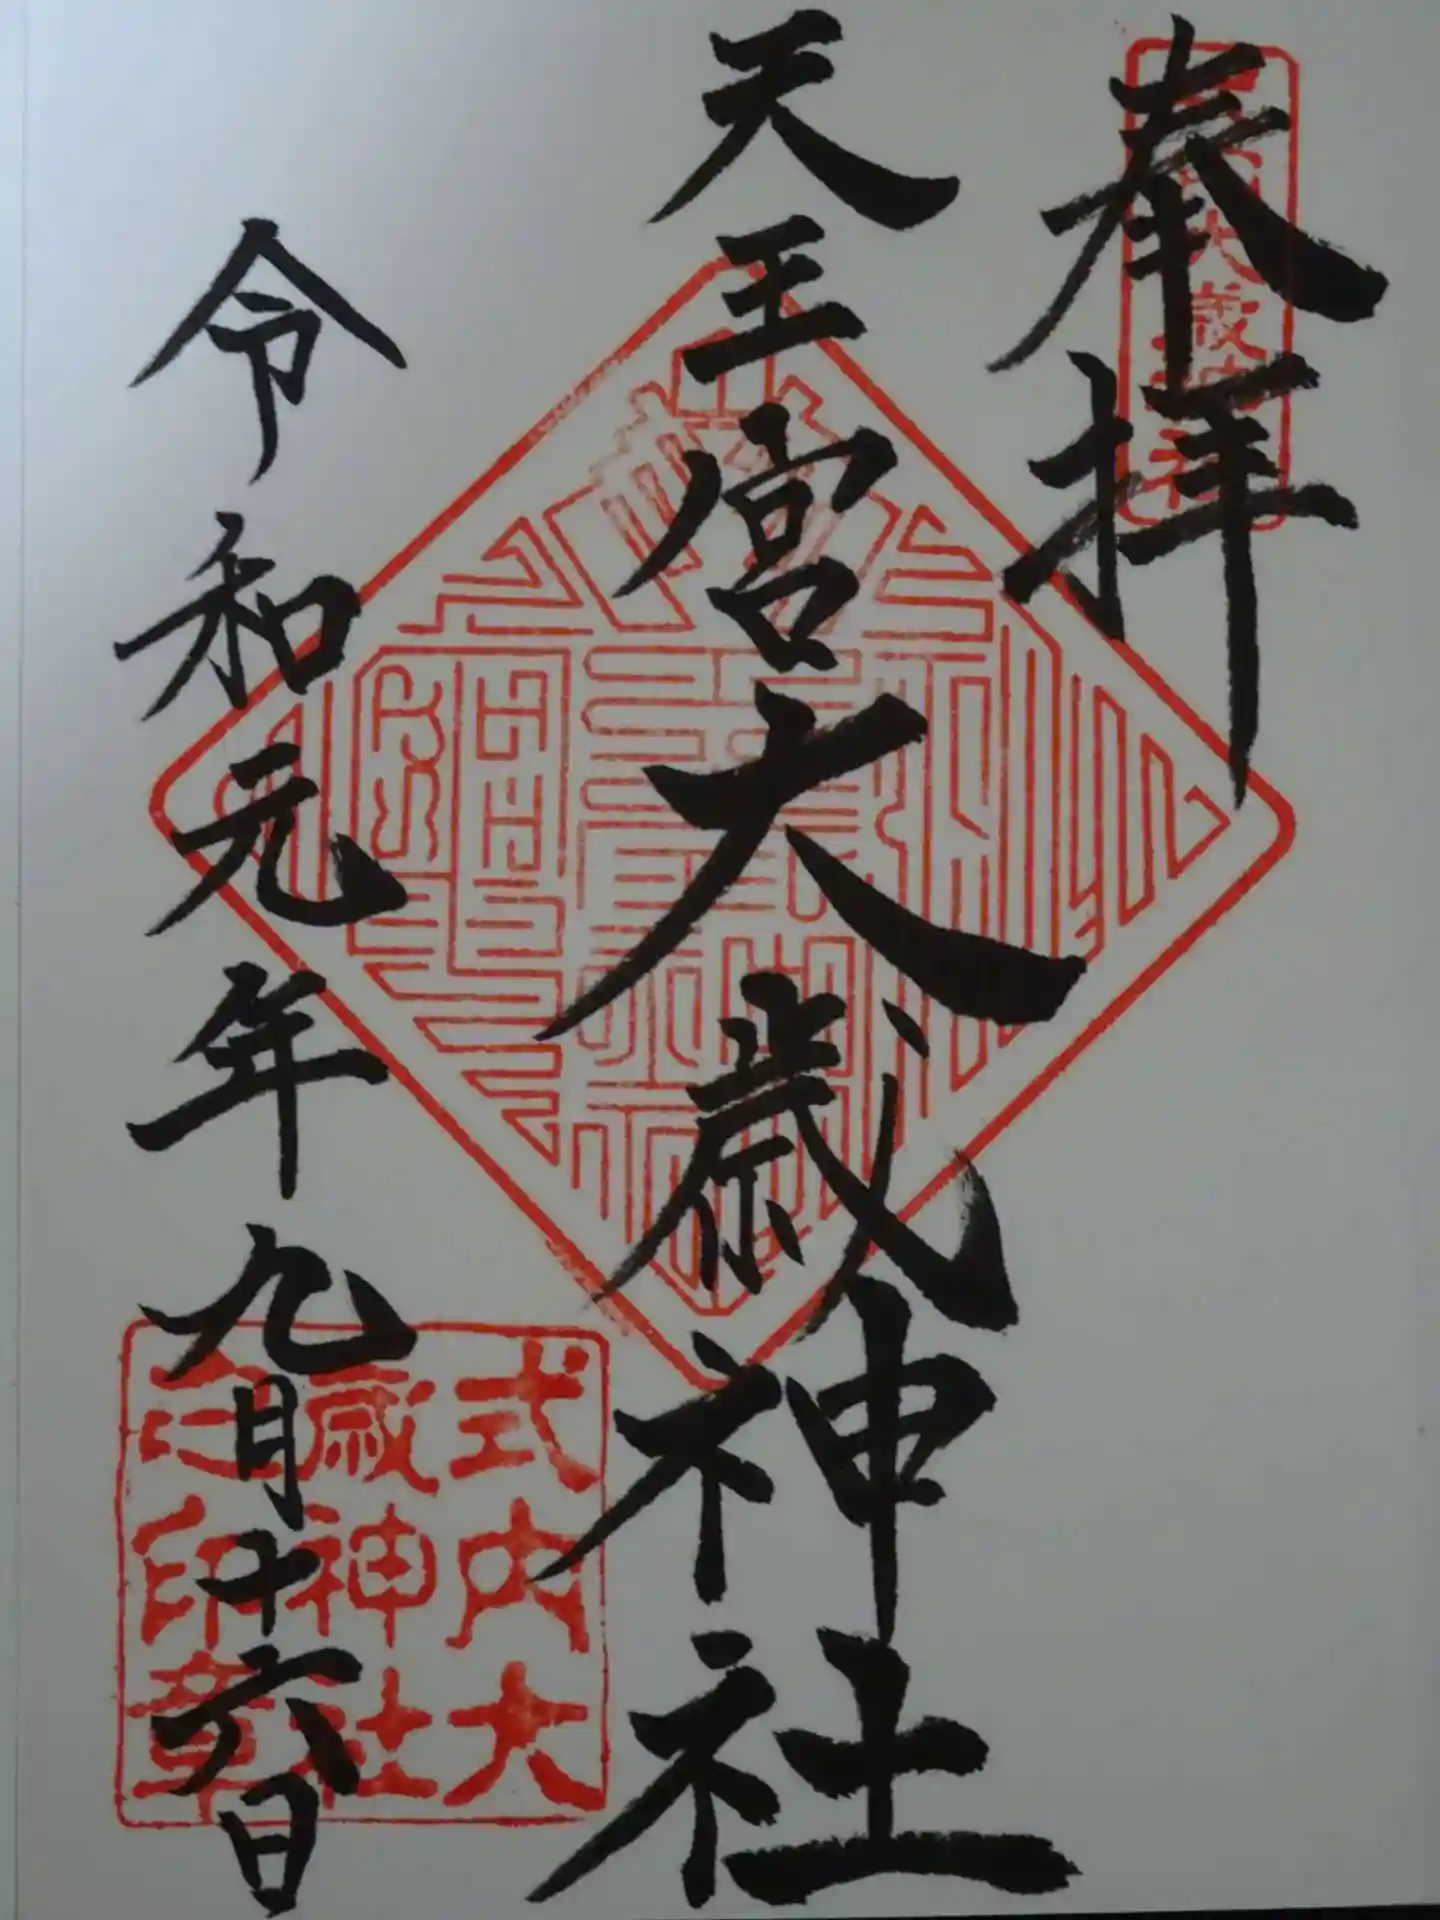 奉拝
天王宮大歳神社
令和元年九月十六日
式内大
歳神社
之印章